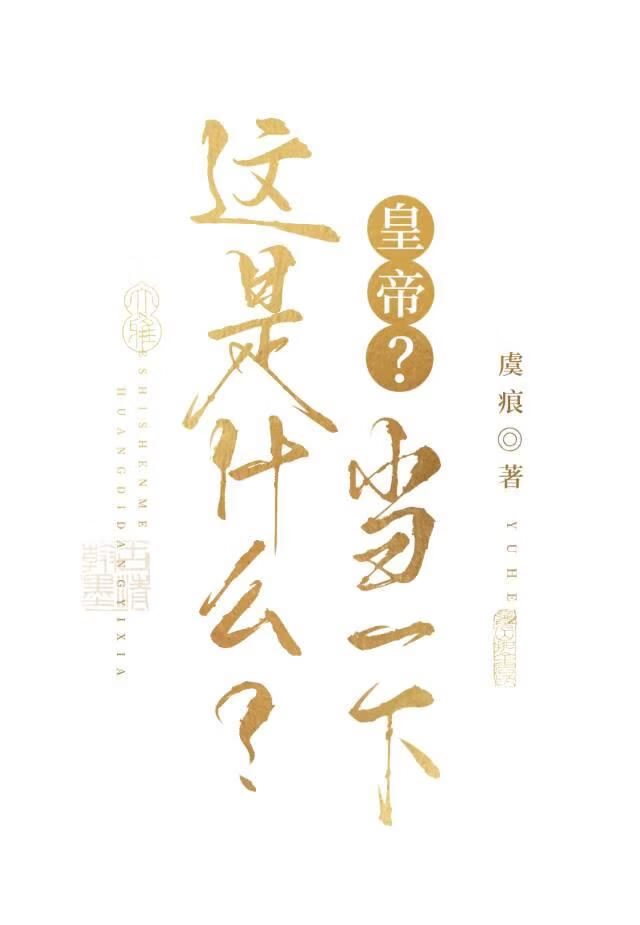 这是什么?
皇帝?当一下
虞痕◎著
YUHE
ESHISHENME
HUANGDIDANGYIXIA